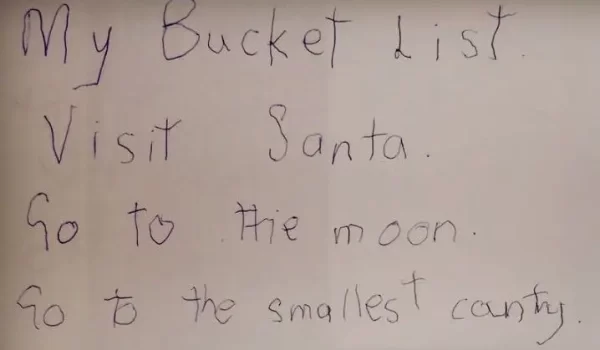 My Bucket List.
Visit Santa.
Go to the moon.
Go to the smallest canty.